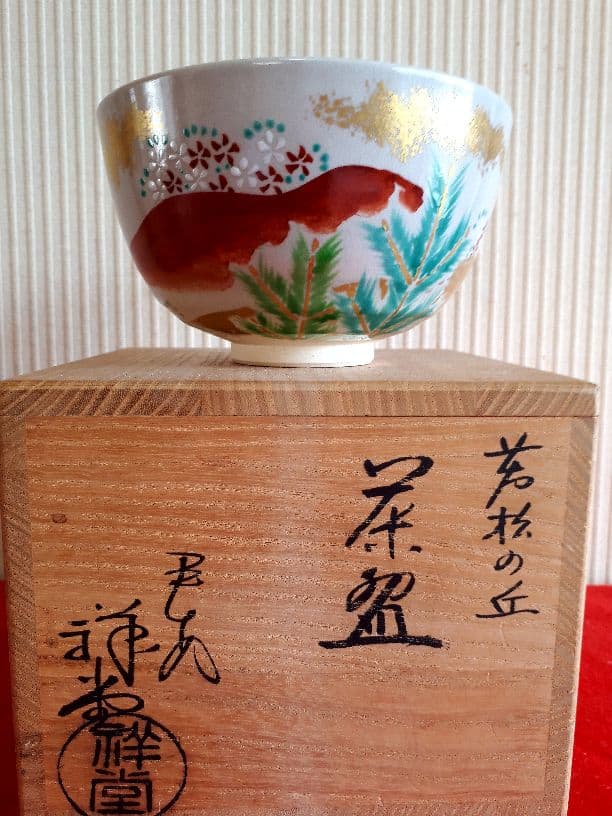 若松の丘
茶盌
平安
祥堂
祥堂